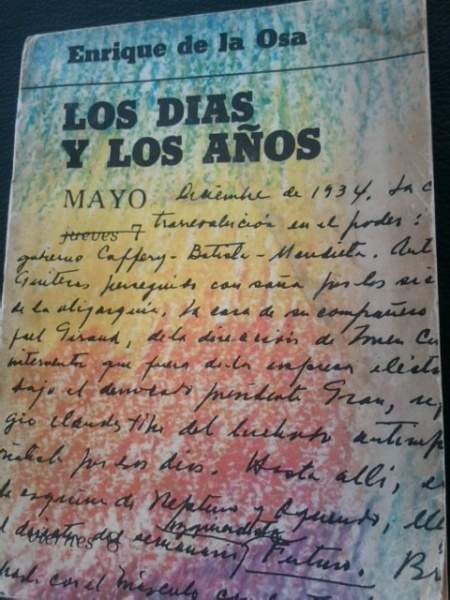 Enrique de la Osa
LOS DIAS
Y LOS AÑOS
MAYO Diciembre de 1934. La c
jueves 7 trarrevolución en el poder:
gobierno Caffery-Batista-Mendieta. Ant
Guiteras perseguido con saña por los sic
de la oligarquía. La casa de su compañero
de la dirección de Joven Cu
interventor que fuera de la empresa eléct
bajo el derrocado presidente Grau,
gio clandestino del luchador antimp
por los días. Hasta allí,
esquina de Neptuno y Oquendo, lle
viernes 8
el del semanario Futuro.
con el